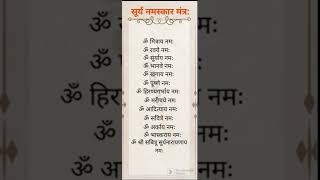 सूर्य नमस्कार मंत्र:
ॐ मित्राय नमः
ॐ रवये नमः
ॐ सूर्याय नमः
ॐ भानवे नमः
ॐ खगाय नमः
ॐ पूष्णे नमः
ॐ हिरण्यगर्भाय नमः
ॐ मरीचये नमः
ॐ आदित्याय नमः
ॐ सवित्रे नमः
ॐ अर्काय नमः
ॐ भास्कराय नमः
ॐ श्री सवितृ सूर्यनारायणाय
नमः